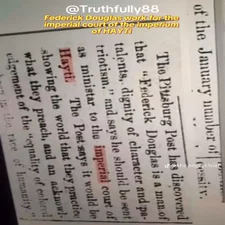 @Truthfully88
Federick Douglas work for the
imperial court of the imperium
of HAYTI
of the January number of
The Pittsburg Post has discovered
that "Federick Douglas is a man of
talents, dignity of character and pa-
triotism," and says he should be sent
as minister to the imperial court of
Hayti. The Post says it would be
showing the world that they practice
what they preach, and an acknowl-
edgement of the "equality of colored
in the race of humanity."